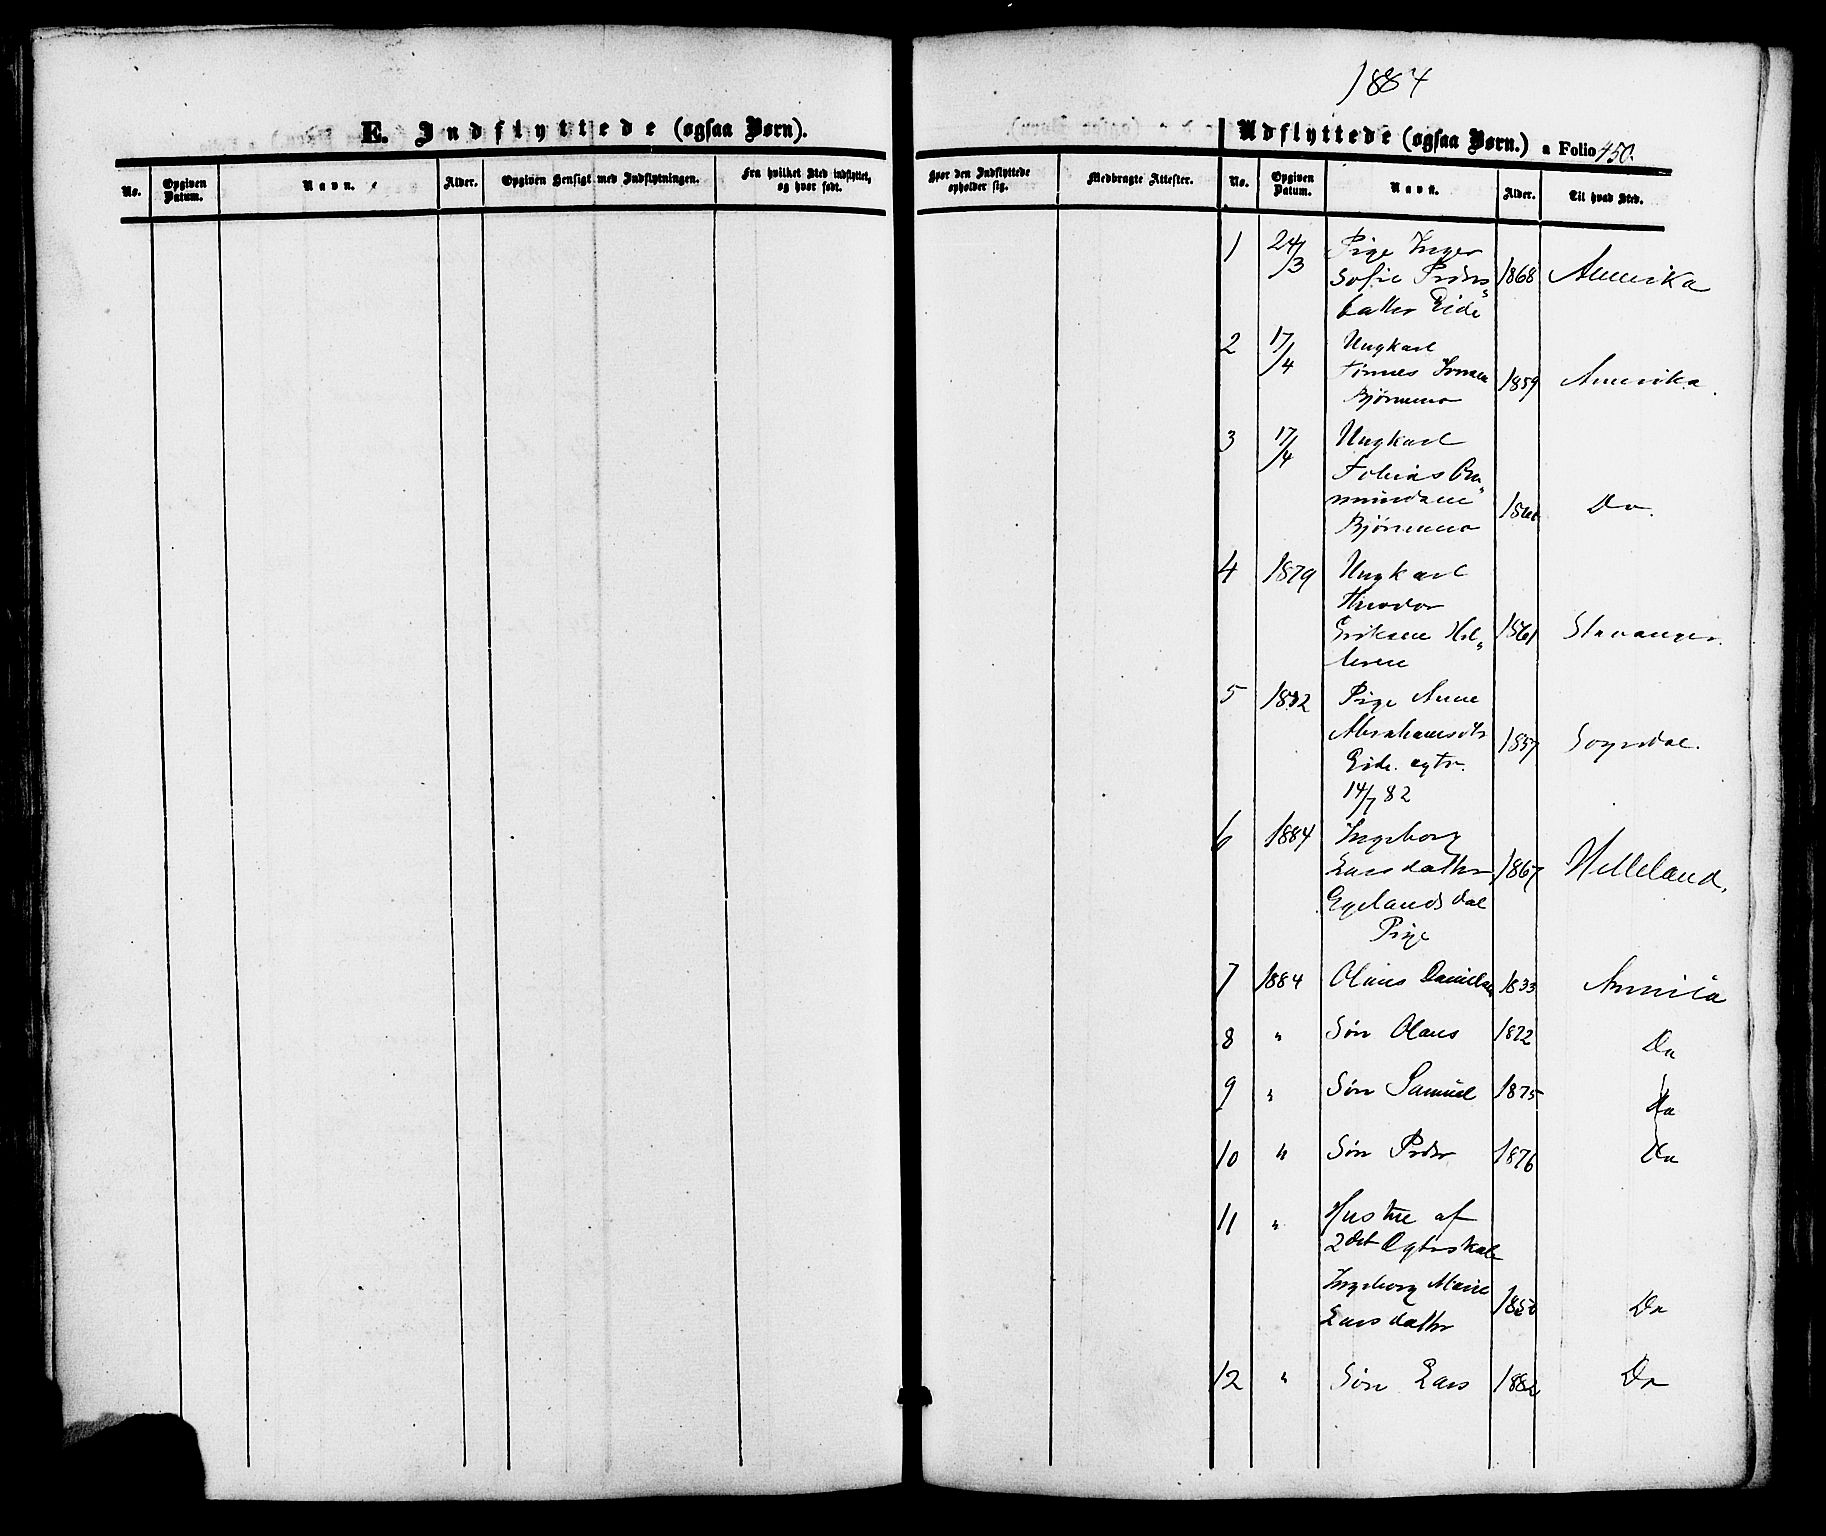 1884
E. Indflyttede (ogsaa Børn).
Udflyttede (ogsaa Børn.) a Folio 450.
No. Opgiven Datum. Navn. Alder. Opgiven Hensigt med Indflytningen. Fra hvilket Sted indflyttet, og hvor født.
Hvor den Indflyttede opholder sig. Medbragte Attester. No. Opgiven Datum. Navn. Alder. Til hvad Sted.
1 24/3 Pige Inger
Sofie Peders 1868 Amerika
datter Eide
2 17/4 Ungkarl
Tønnes 1859 Amerika.
3 17/4 Ungkarl
Tobias
Do.
4 1879 Ungkarl
Theodor
Eriksen Hel 1861 Stavanger.
leren
5 Pige Anne
Abrahamsdtr 1857 Sogndal.
Eide. egtv.
14/7 82
6 1884 Ingeborg
Larsdatter 1867 Helleland.
Egelandsdal
Pige
7 1884 Olaus Danielsen 1833
8 " Søn Olaus Do
9 " Søn Samuel 1875 Do
10 " Søn Peder 1876 Do
11 " Hustru af
2det Ægteskab
Ingeborg Marie
Larsdatter Do
12 " Søn Lars Do